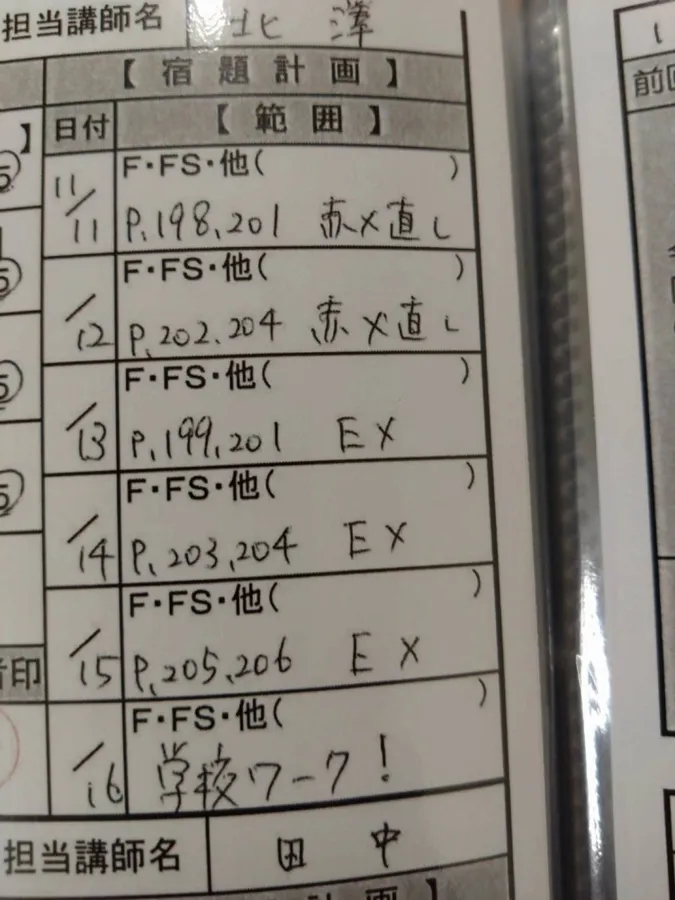 担当講師名 北澤
【宿題計画】
】 日付 【範囲】
F・FS・他( )
11/11 P.198,201 赤×直し
F・FS・他( )
/12 P.202.204 赤×直し
F・FS・他( )
/13 P.199,201 EX
F・FS・他( )
/14 P.203,204 EX
F・FS・他( )
/15 P.205,206 EX
F・FS・他( )
印 /16 学校ワーク!
担当講師名 田中
計画】
前回